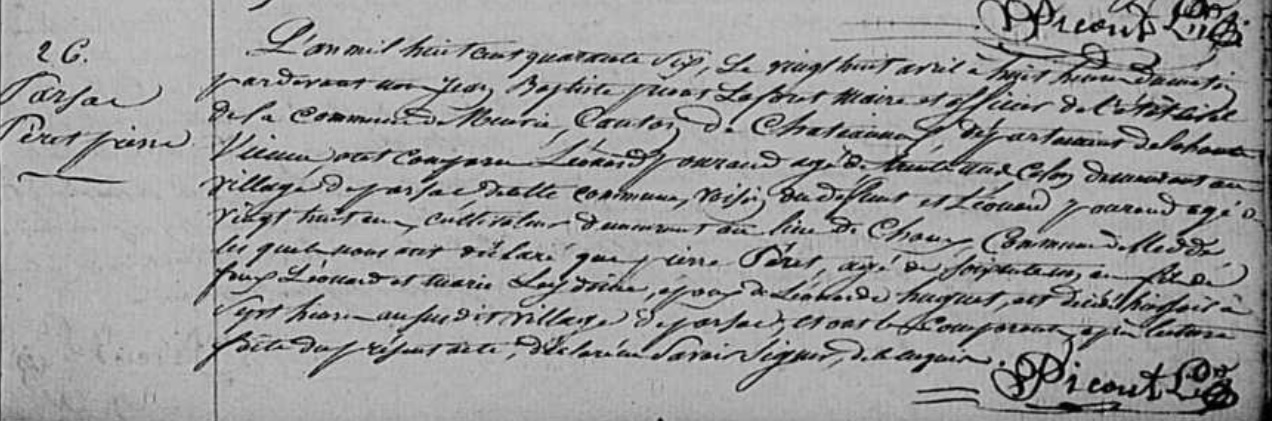 Picout
26.
Parsac
Péret pierre
L'an mil huit cent quarante Six, Le vingt huit avril à huit heures du matin
par devant nous Jean Baptiste picout Laforet Maire et officier de l'état civil
de la Commune de Canton de Chateauneuf département de la haute
Vienne ont comparu Léonard agé de trente ans Colon demeurant au
village de parsac de cette commune, voisin du deffunt et Léonard agé de
vingt huit ans, cultivateur demeurant au lieu de Commune de
les quels nous ont déclaré que pierre Péret, agé de Soixante ans fils de
feux Léonard et marie époux de Léonarde huguet, est décédé hier soir à
Sept heures au susdit village de parsac, et ont les Comparants après lecture
faite du présent acte, déclaré ne Savoir Signer, de ce enquis.
Picout